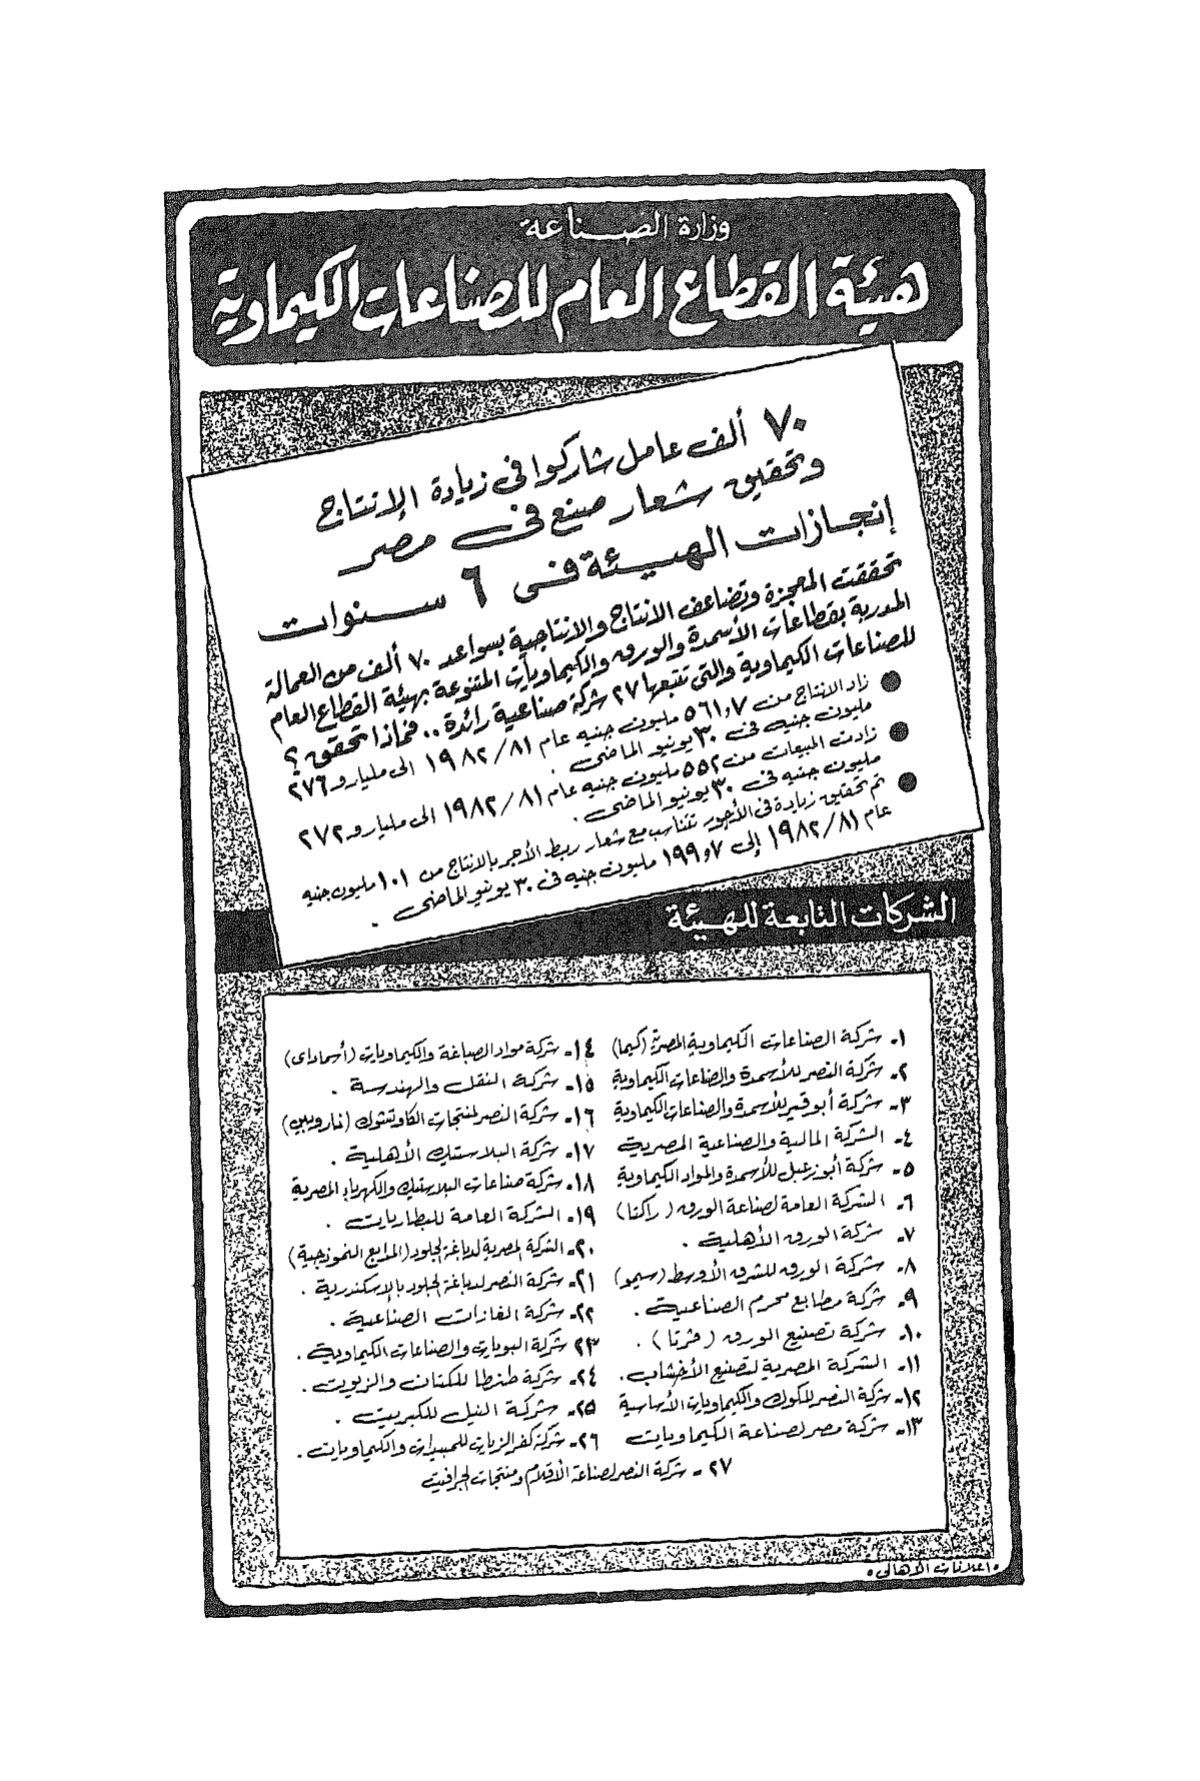 وزارة الصناعة
هيئة القطاع العام للصناعات الكيماوية
٧٠ ألف عامل شاركوا في زيادة الإنتاج
وتحقيق شعار صنع في مصر
إنجازات الهيئة في ٦ سنوات
تحققت المعجزة وتضاعف الانتاج والانتاجية بسواعد ٧٠ ألف من العمالة
المدربة بقطاعات الأسمدة والورق والكيماويات المتنوعة بهيئة القطاع العام
للصناعات الكيماوية والتى تتبعها ٢٧ شركة صناعية رائدة .. فماذا تحقق ؟
● زاد الانتاج من ٥٦١٫٧ مليون جنيه عام ١٩٨٢/٨١ الى مليار و ٢٧٦
مليون جنيه فى ٣٠ يونيو الماضى .
● زادت المبيعات من ٥٥٢ مليون جنيه عام ١٩٨٢/٨١ الى مليار و ٢٧٢
مليون جنيه فى ٣٠ يونيو الماضى .
● تم تحقيق زيادة فى الأجور تتناسب مع شعار ربط الأجر بالانتاج من ١٠١ مليون جنيه
عام ١٩٨٢/٨١ إلى ١٩٩٫٧ مليون جنيه فى ٣٠ يونيو الماضى .
الشركات التابعة للهيئة
١- شركة الصناعات الكيماوية المصرية (كيما)
٢- شركة النصر للأسمدة والصناعات الكيماوية
٣- شركة أبو قير للأسمدة والصناعات الكيماوية
٤- الشركة المالية والصناعية المصرية
٥- شركة أبو زعبل للأسمدة والمواد الكيماوية
٦- الشركة العامة لصناعة الورق (راكتا)
٧- شركة الورق الأهلية .
٨- شركة الورق للشرق الأوسط (سيمو)
٩- شركة مطابع محرم الصناعية .
١٠- شركة تصنيع الورق (فرتا) .
١١- الشركة المصرية لتصنيع الأخشاب .
١٢- شركة النصر للكوك والكيماويات الأساسية
١٣- شركة مصر لصناعة الكيماويات
١٤- شركة مواد الصباغة والكيماويات (أسماداى)
١٥- شركة النقل والهندسة .
١٦- شركة النصر لمنتجات الكاوتشوك (ناروبين)
١٧- شركة البلاستيك الأهلية .
١٨- شركة صناعات البلاستيك والكهرباء المصرية
١٩- الشركة العامة للبطاريات .
٢٠- الشركة المصرية لدباغة الجلود (المدابغ النموذجية)
٢١- شركة النصر لدباغة الجلود بالإسكندرية .
٢٢- شركة الغازات الصناعية .
٢٣- شركة البويات والصناعات الكيماوية .
٢٤- شركة طنطا للكتان والزيوت .
٢٥- شركة النيل للكبريت .
٢٦- شركة كفر الزيات للمبيدات والكيماويات .
٢٧- شركة النصر لصناعة الأقلام ومنتجات الجرافيت
• اعلانات الأهالى •